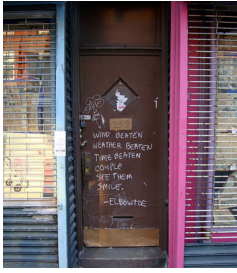 WIND BEATEN
WEATHER BEATEN
TIME BEATEN
COUPLE
SEE THEM
SMILE.
-ELBOWTOE